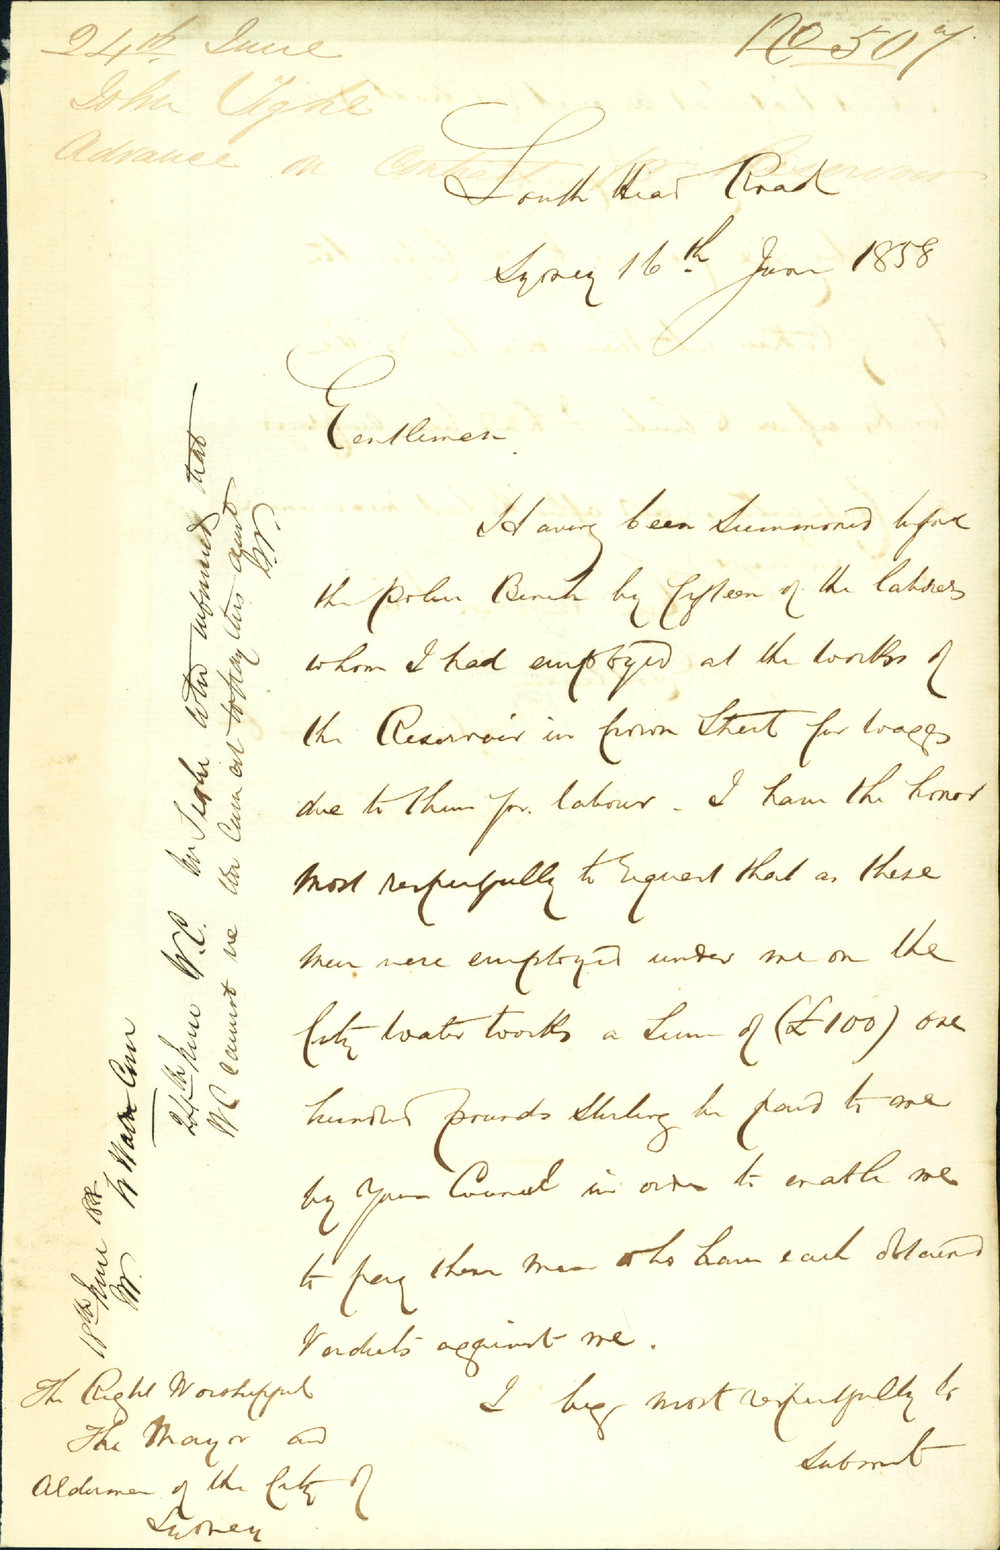 24th June
No 507
John Tighe
Advance on Contract for Reservoir
South Head Road
Sydney 16th June 1858
Gentlemen
Having been Summoned before
the police Bench by fifteen of the laborers
whom I had employed at the works of
the Reservoir in Crown Street for wages
due to them for labour - I have the honor
most respectfully to request that as these
men were employed under me on the
City Water Works a Sum of (£100) one
hundred pounds Sterling be paid to me
by Your Council in order to enable me
to pay these men who have each obtained
Verdicts against me.
I beg most respectfully to
Submit
The Right Worshipful
The Mayor and
Aldermen of the City of
Sydney
18th June 1858
W.
W Water Com
24th June W.C. Mr Tighe to be informed that
WC cannot we can not to pay this amt
W.